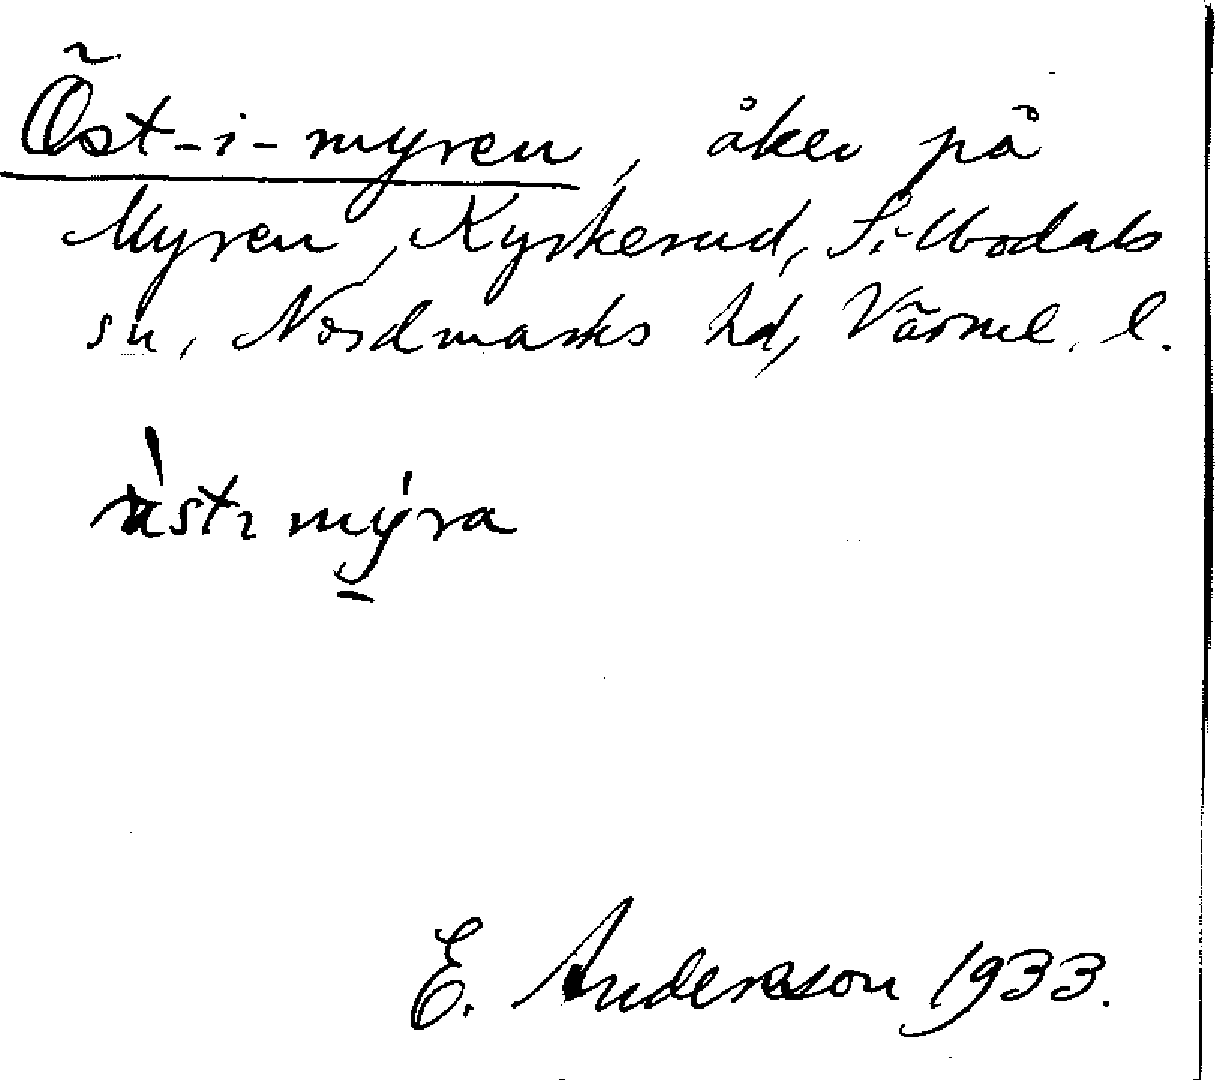 Öst-i-myren, åker på
Myren, Kyrkerud, Silbodals
sn, Nordmarks hd, Värml. l.
mýra
E. Anderson 1933.